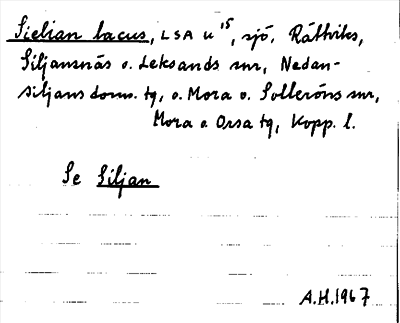 Sielian lacus, LSA u 15, sjö. Rättviks,
Siljansnäs o. Leksands snr, Nedan-
siljans doms. tg, o. Mora o. Solleröns snr,
Mora o Orsa tg, Kopp. l.
Se Siljan
A.H. 1967